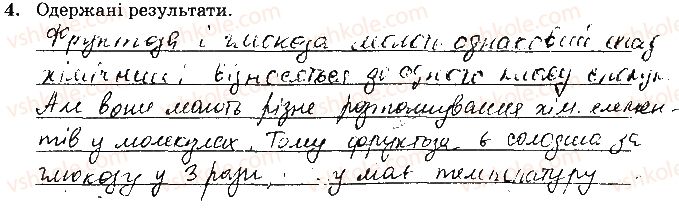 4. Одержані результати.
Фруктоза і глюкоза мають однаковий склад
хімічний і відносяться до одного класу сполук.
Але вони мають різне розташування хім. елемен-
тів у молекулах. Тому фруктоза в солодша за
глюкозу у 3 рази, у має температуру